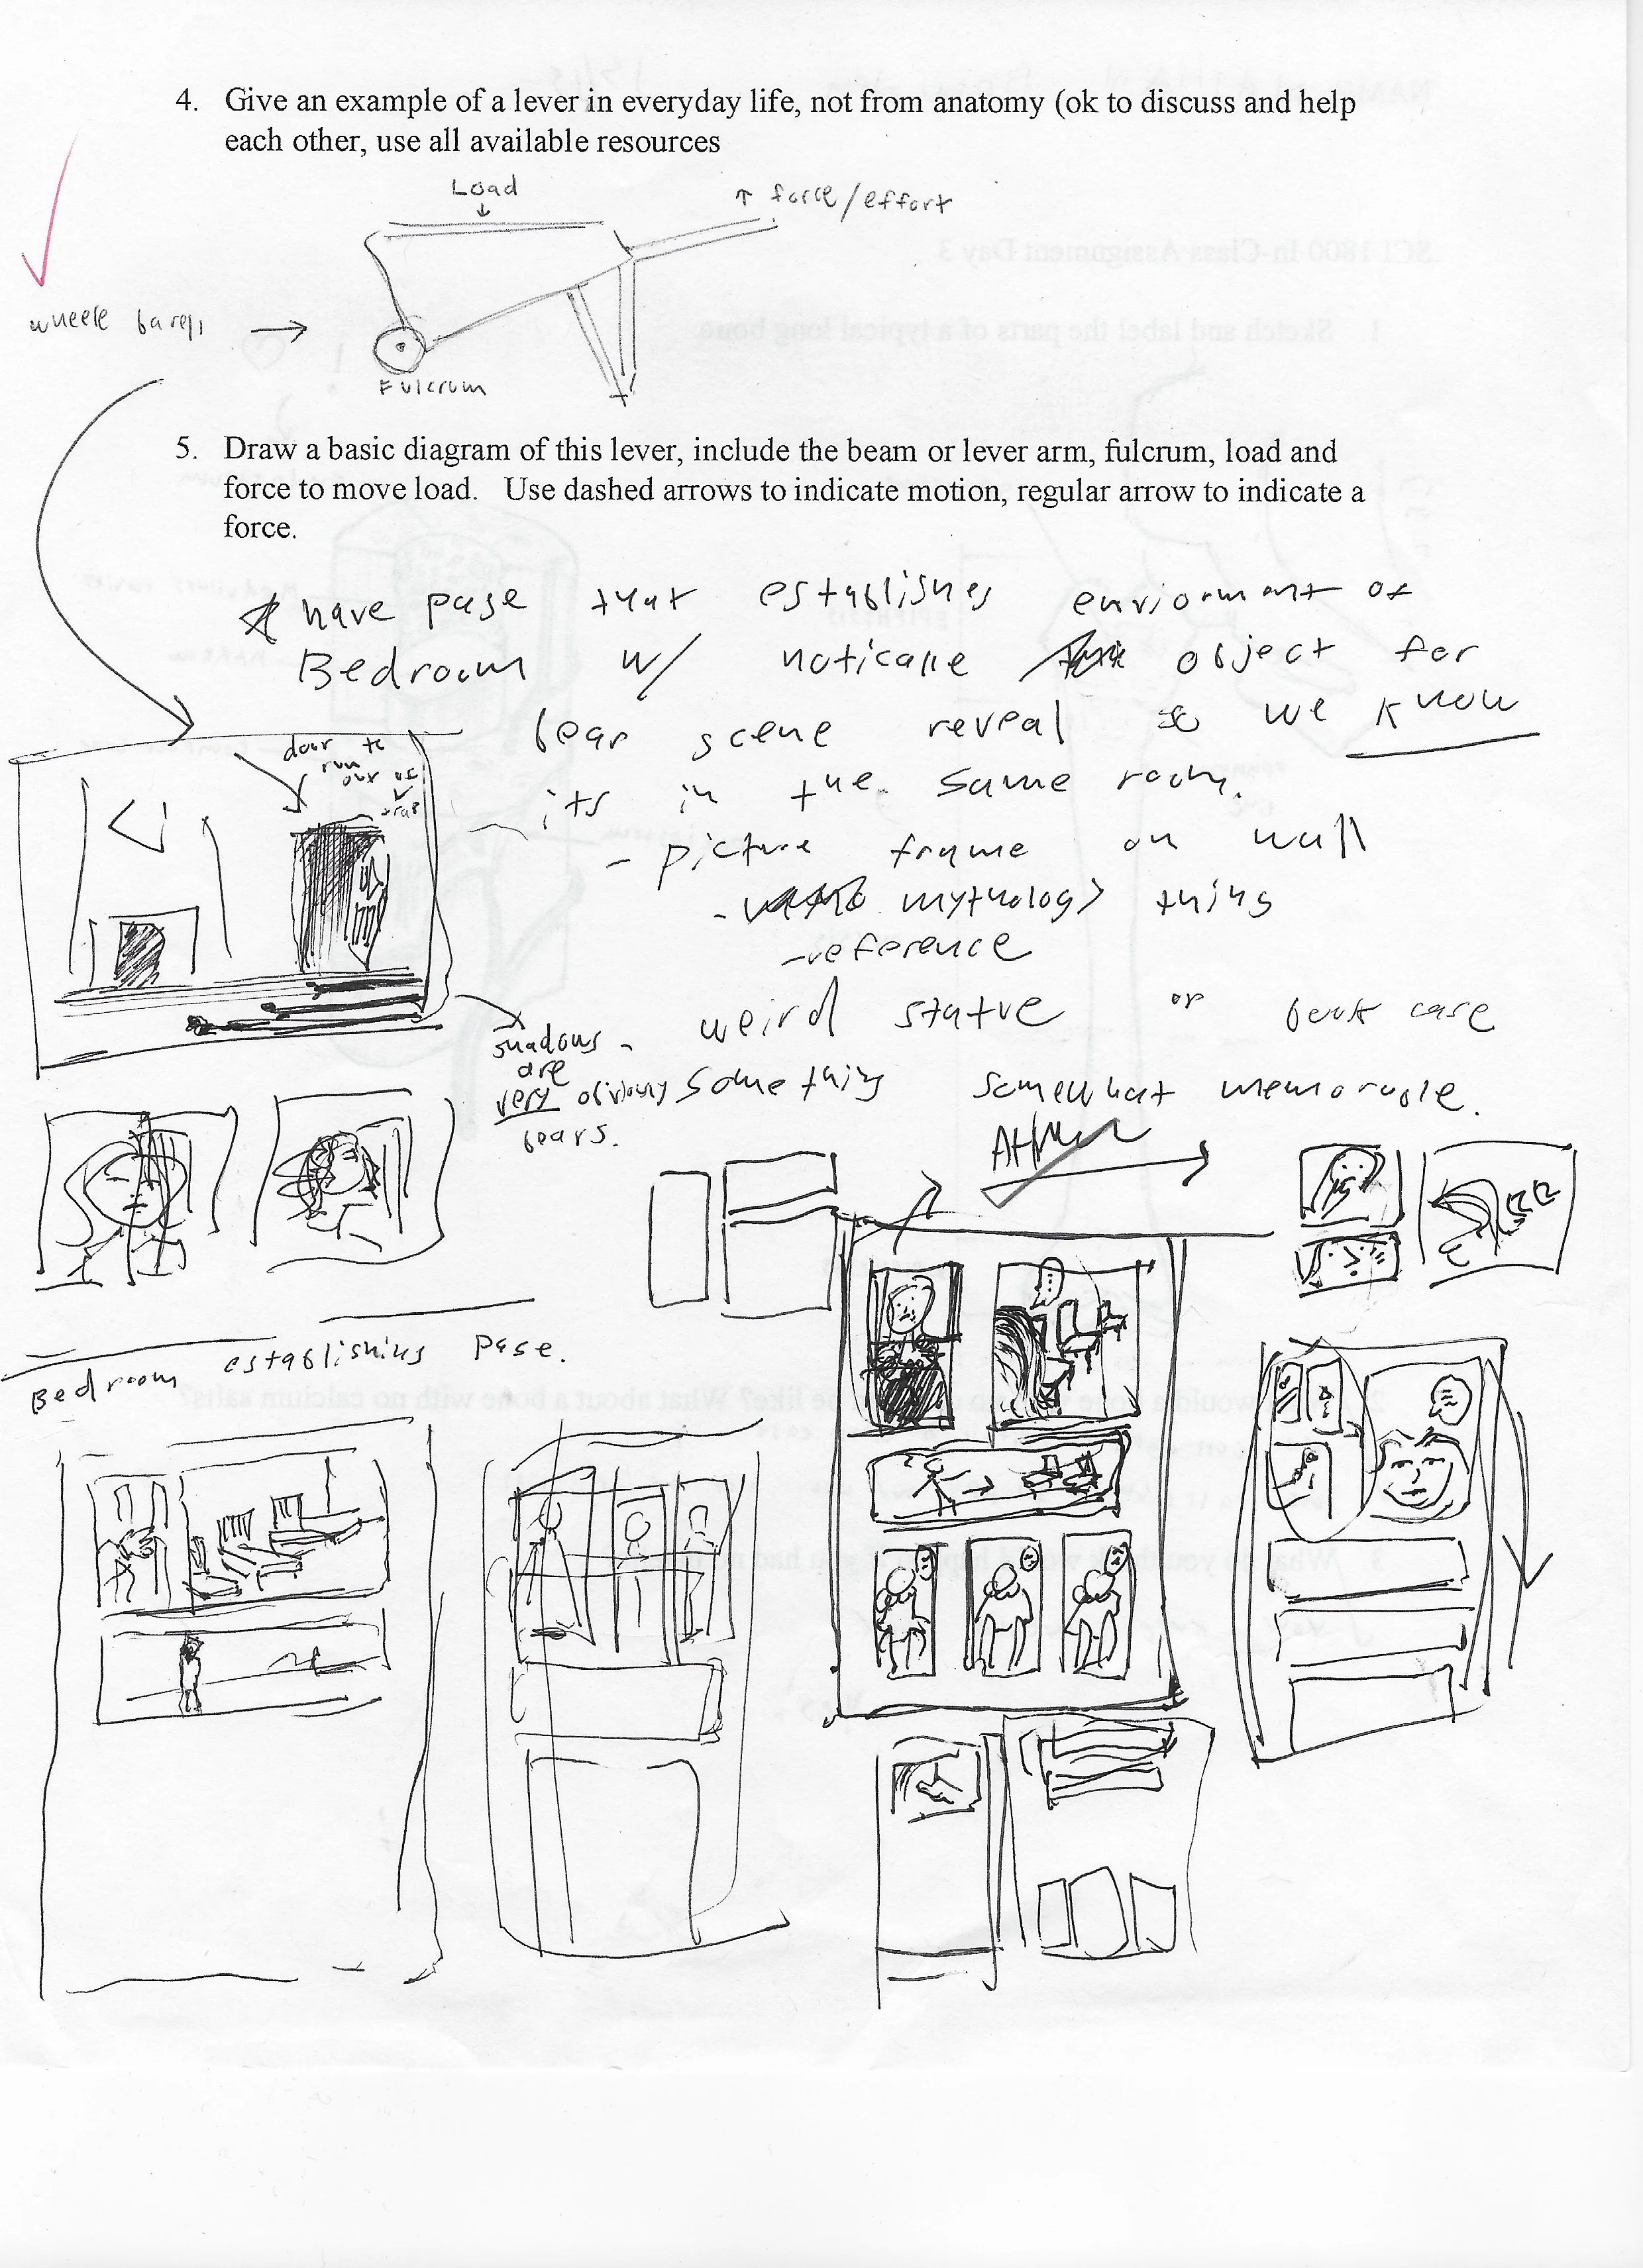 4. Give an example of a lever in everyday life, not from anatomy (ok to discuss and help
each other, use all available resources
Load
↑ force/effort
wheele →
Fulcrum
5. Draw a basic diagram of this lever, include the beam or lever arm, fulcrum, load and
force to move load. Use dashed arrows to indicate motion, regular arrow to indicate a
force.
have page that establishes enviorment of
Bedroom w/ noticable object for
bear scene reveal so we know
its in the same room.
- picture frame on wall
- mythology thing
- reference
- weird statue or book case
something somewhat memorable.
door to
run
out of
shadows
are
very obviously
bears.
Bedroom establishing page.
SCI 1800 In-Class Assignment Day 3
1. Sketch and label the parts of a typical long bone
What about a bone with no calcium salts?